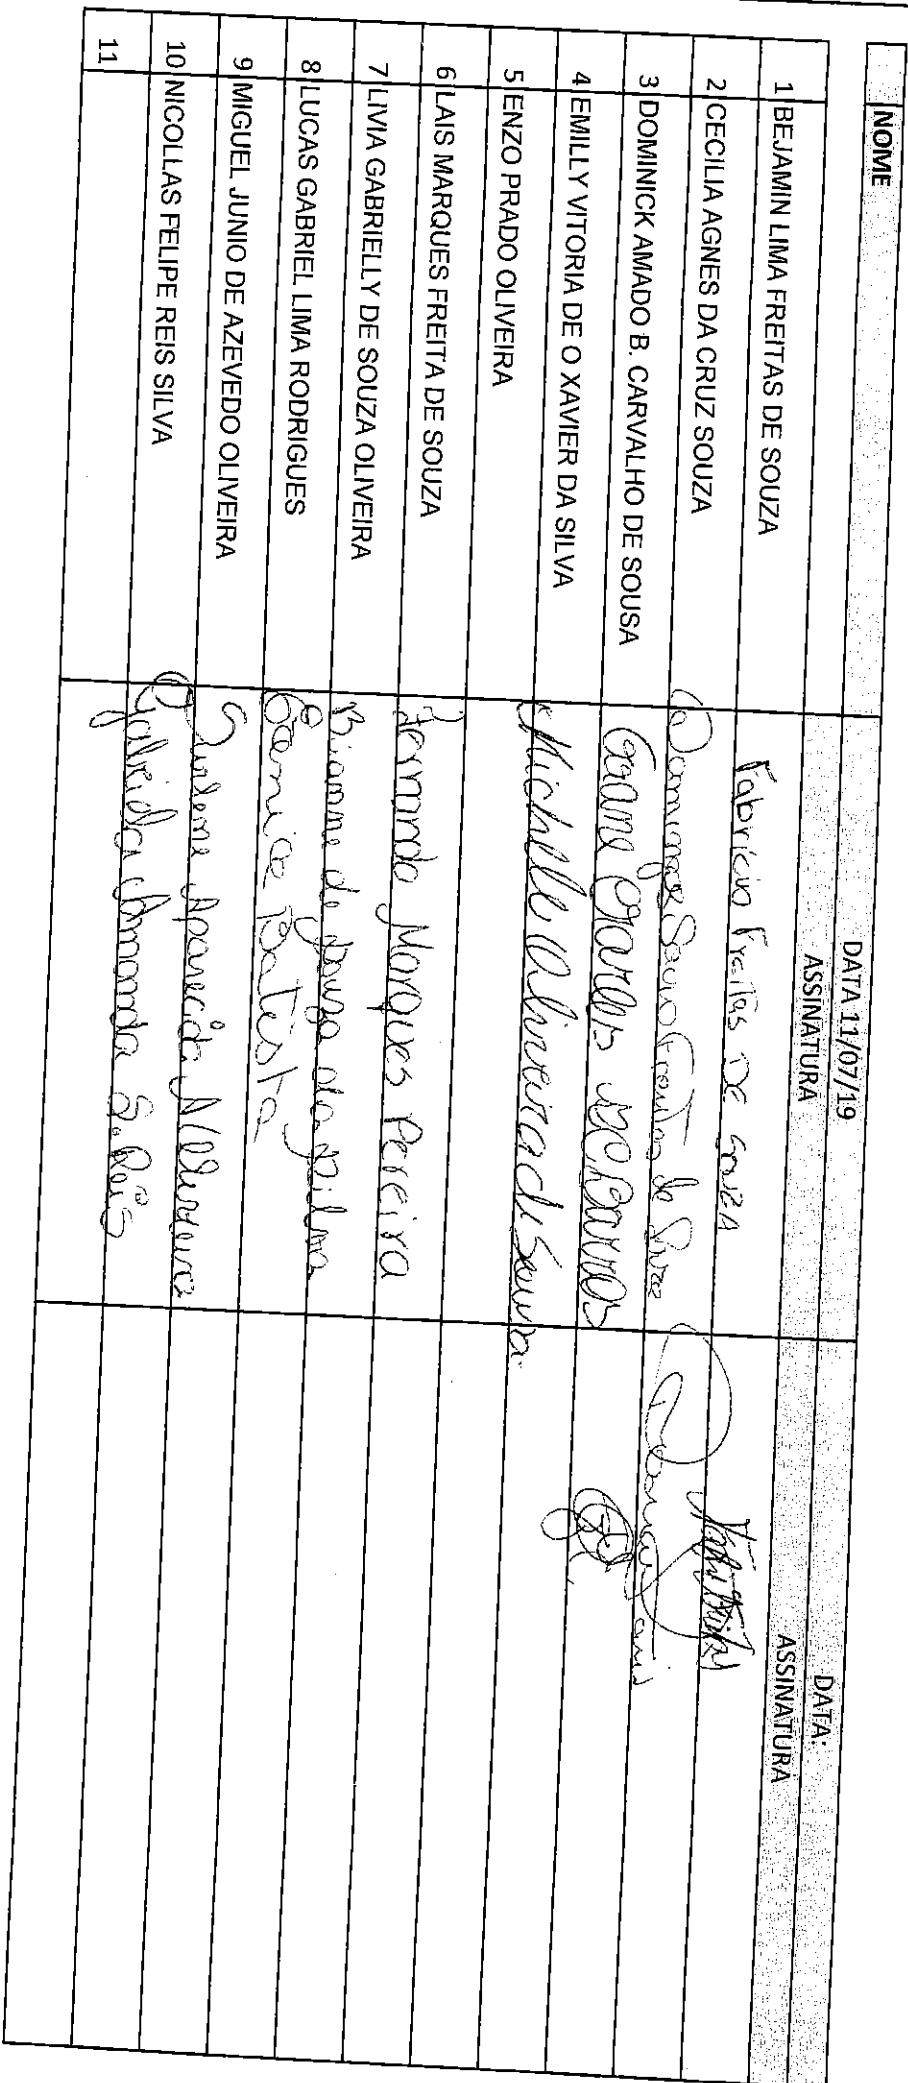 NOME DATA 11/07/19 DATA:
ASSINATURA ASSINATURA
1 BEJAMIN LIMA FREITAS DE SOUZA Fabricia Freitas DE SOUZA
2 CECILIA AGNES DA CRUZ SOUZA Domingos Savio Freitas de
3 DOMINICK AMADO B. CARVALHO DE SOUSA
4 EMILLY VITORIA DE O XAVIER DA SILVA Michelle Oliveira de Souza
5 ENZO PRADO OLIVEIRA
6 LAIS MARQUES FREITA DE SOUZA Fernanda Marques Pereira
7 LIVIA GABRIELLY DE SOUZA OLIVEIRA Bianne de Souza da Silva
8 LUCAS GABRIEL LIMA RODRIGUES Batista
9 MIGUEL JUNIO DE AZEVEDO OLIVEIRA Aparecida
10 NICOLLAS FELIPE REIS SILVA Gabriella Amanda S. Reis
11